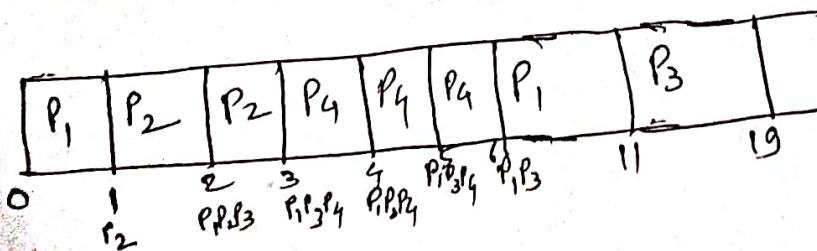 P1 P2 P2 P4 P4 P4 P1 P3
0 1 2 3 4 5 6 11 19
P2 P1P2P3 P1P3P4 P1P3P4 P1P3P4 P1P3